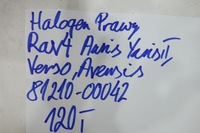 Halogen Prawy
Rav4 Auris Yaris II
Verso, Avensis
81210-00042
120,-